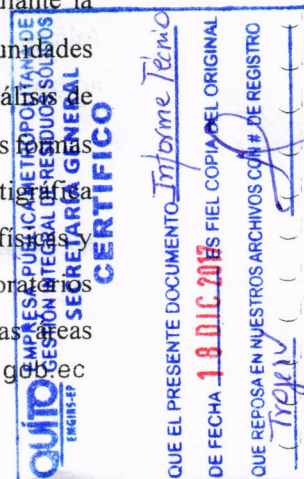 diante la
unidades
álisis de
s formas
tigráfica
físicas y
oratorios
as áreas
gob.ec
QUITO EMPRESA PÚBLICA METROPOLITANA DE
EMGIRS-EP GESTIÓN INTEGRAL DE RESIDUOS SÓLIDOS
SECRETARÍA GENERAL
CERTIFICO
QUE EL PRESENTE DOCUMENTO Informe Técnico
DE FECHA 18 DIC 2017 ES FIEL COPIA DEL ORIGINAL
QUE REPOSA EN NUESTROS ARCHIVOS CON # DE REGISTRO